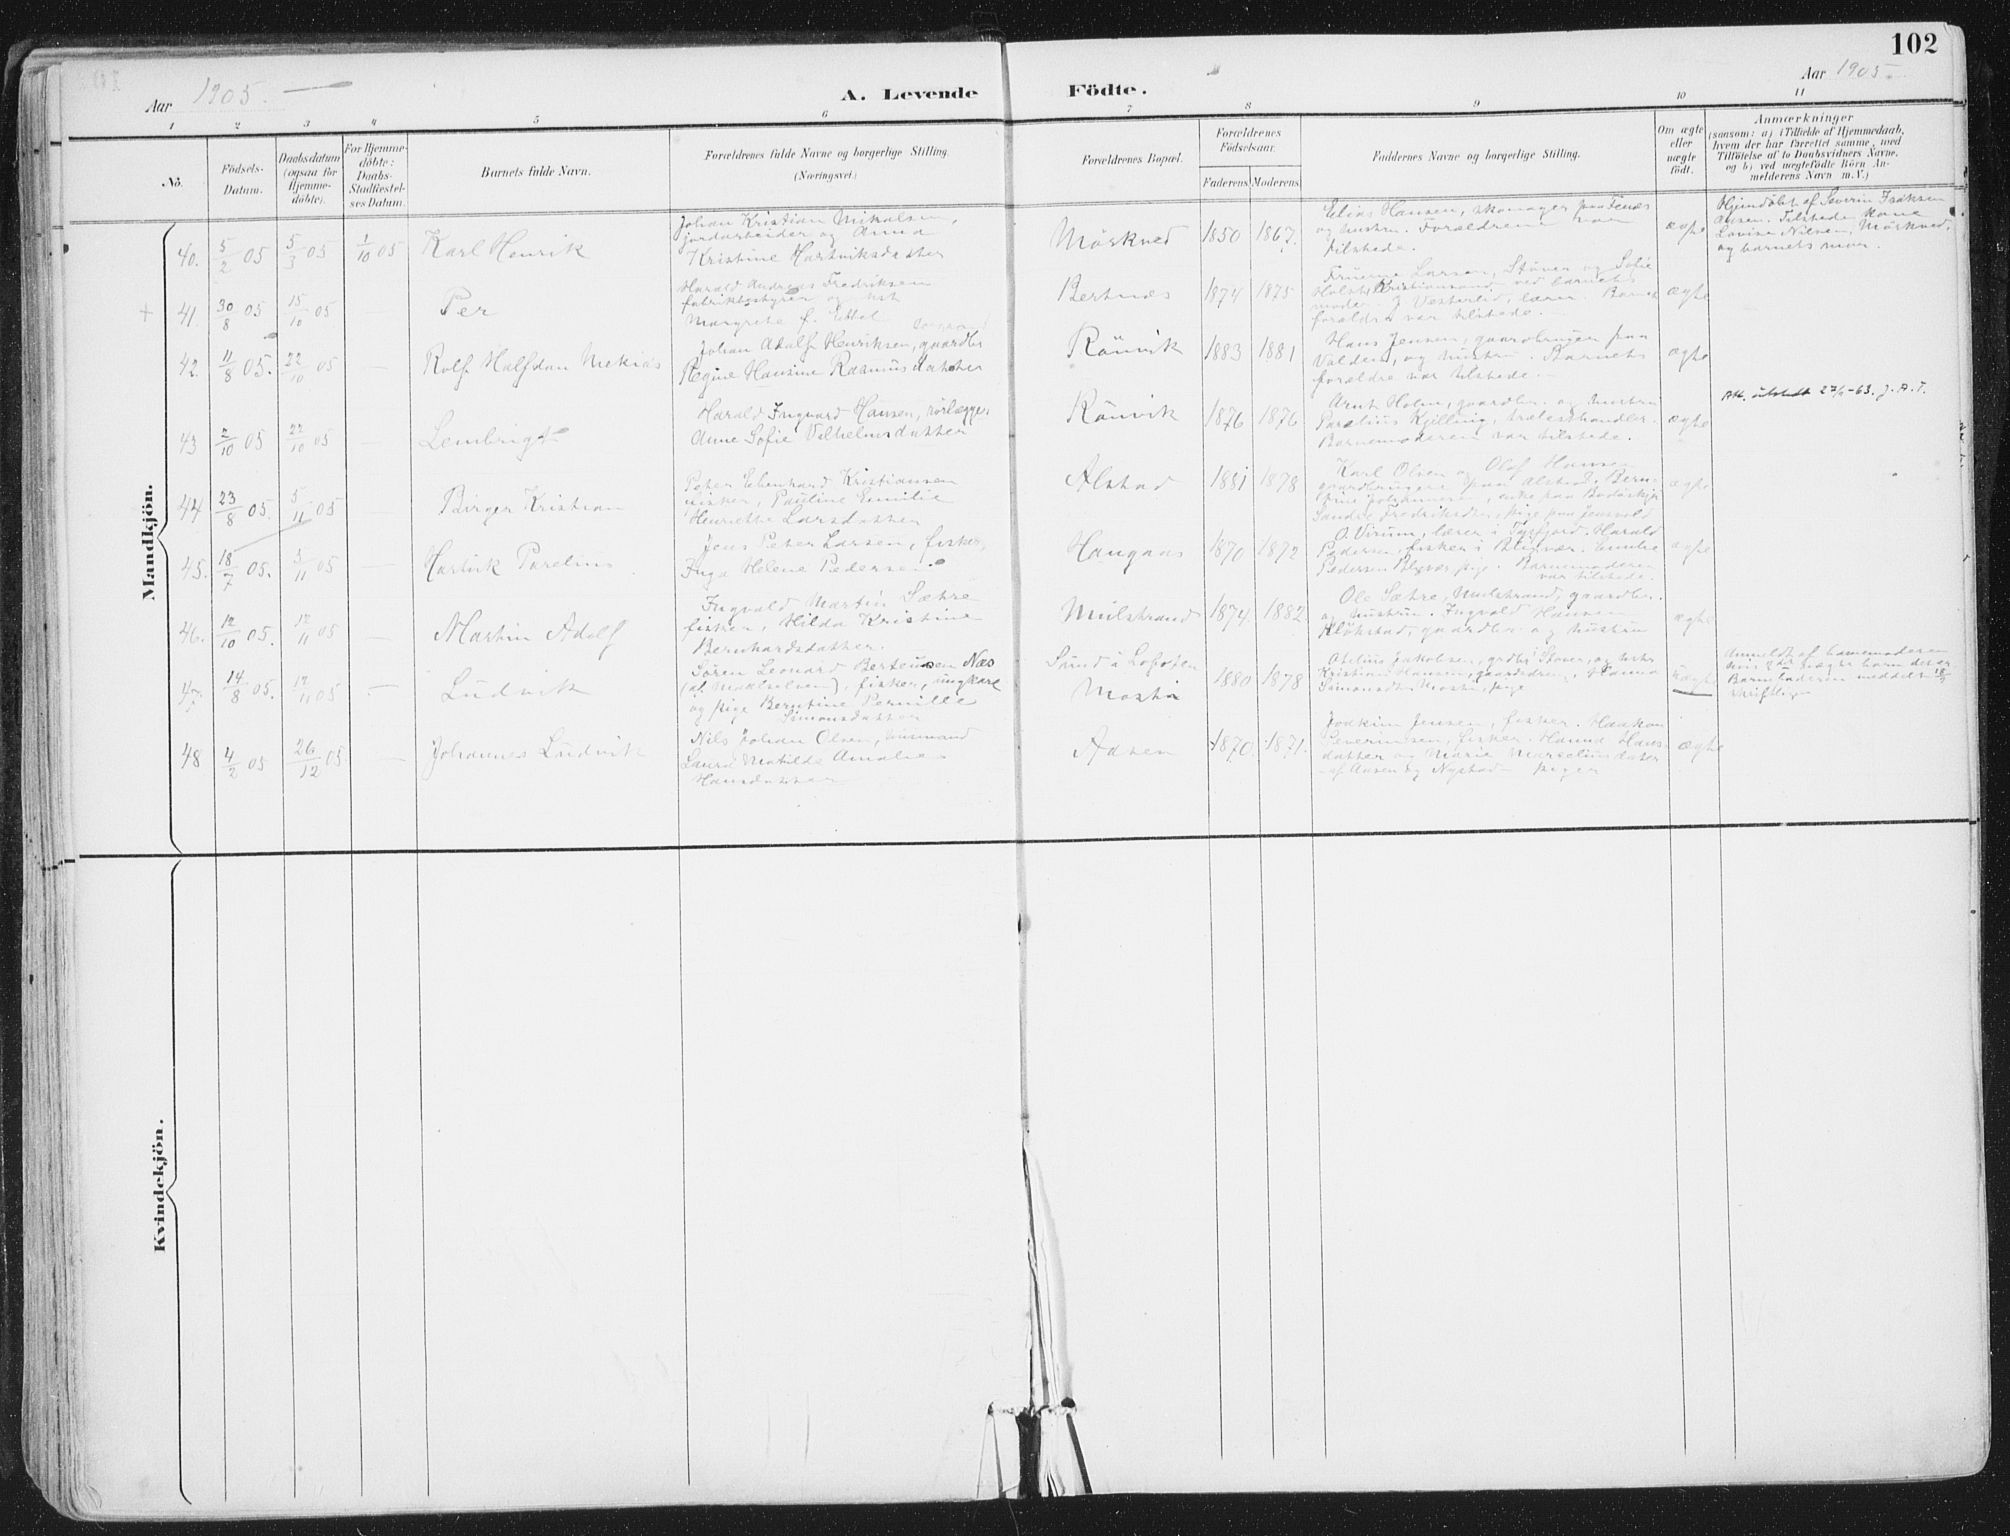 102
Aar 1905.
A. Levende Födte.
Aar 1905.
1 2 3 4 5 6 7 8 9 10 11
No.
Födsels-Datum.
Daabsdatum (ogsaa for Hjemme-döbte).
For Hjemme-döbte: Daabs-Stadfæstel-ses Datum.
Barnets fulde Navn.
Forældrenes fulde Navne og borgerlige Stilling.
(Næringsvei.)
Forældrenes Bopæl.
Forældrenes Födselsaar.
Faderens Moderens
Faddernes Navne og borgerlige Stilling.
Om ægte eller uægte födt.
Anmærkninger
(saasom: a) i Tilfælde af Hjemmedaab,
hvem der har forrettet samme, med
Tilföielse af to Daabsvidners Navne,
og b) ved uægtefödte Börn An-
melderens Navn m. V.)
Mandkjön.
40. 5/2 05 5/3 05 1/10 05 Karl Henrik
Johan Kristian Nikolsen,
jordarbeider og Anna
Kristine Hartviksdatter
Mörkved 1850 1867.
Elias Hansen, skomager paa
og hustru. Forældrene var
tilstede.
ægte
Hjemdöbt af Severin
Tilstede kone
Lovise Nilsen, Mörkved,
og barnets mor.
41. 30/8 05 15/10 05 Per
Harald Andreas Fredriksen
fabrikbestyrer og
Margrethe f.
Bertnes 1874 1875
Fruerne Larsen, Stöver og Sofie
Holst, Kristiansand ved barnets
moder. J Vesterlid, lærer. Barnets
forældre var tilstede.
ægte
42. 11/8 05. 22/10 05 Rolf Halfdan Mekias
Johan Adolf Henriksen, gaardbr
Regine Hansine Rasmusdatter
Rönvik 1883 1881
Hans Jensen, gaardbruger paa
Valden, og hustru. Barnets
forældre var tilstede.
ægte
43 2/10 05 22/10 05 Lembrigt
Harald Ingvard Hansen, rörlægger
Anne Sofie Vilhelmsdatter
Rönvik 1876 1876
Arnt Holm, gaardbr. og hustru
Parelius Kjelling, trælasthandler.
Barnemoderen var tilstede.
ægte
Att. utstedt 27/-63. J. A. T.
44 23/8 05. 5/11 05 Birger Kristian
Peter Edenhard Kristiansen
fisker, Pauline Emilie
Henriette Larsdatter
Alstad 1881 1878
Karl Olsen og Olaf Hansen
gaardbrugere paa Alstad.
ægte
45. 18/7 05. 5/11 05 Hartvik Parelius
Jens Peter Larsen, fisker,
Inga Helene Pedersen.
Haugaas 1870 1872
O. Virum, lærer i . Harald
Pedersen, fisker i Bliksvær. Emilie
Pedersen pige. Barnemoderen
var tilstede.
ægte
46. 12/10 05. 12/11 05 Martin Adolf
Ingvald Martin Sæhre
fisker, Hilda Kristine
Bernhardsdatter.
Mulstrand 1874 1882.
Ole Sæhre, Mulstrand, gaardbr.
og hustru. Ingvald Hansen
Klökstad, gaardbr. og hustru
ægte
47. 14/8 05. 12/11 05 Ludvik
Sören Leonard Berteusen Næs
(af Maalselven), fisker, ungkarl
og pige Berntine Pernille
Simonsdatter
Sund i Lofoten
Mostö 1880 1878
Atelius Jakobsen, grdbr Stöver, og
Kristian Hansen, gaardsdreng, Hanna
Simonsdtr Mostö, pige
uægte
Anmeldt af barnemoderen
Barnefaderen meddelt
skriftlig
48 4/2 05 26/12 05 Johannes Ludvik
Nils Johan Olsen, husmand
Laura Matilde Amalie
Hansdatter
Aasen 1870. 1871.
Joakim Jensen, fisker. Haakon
Severinsen, fisker. Hanna Hans-
datter og Marie Marseliusdatter
af Aasen og Nystad piger
ægte
Kvindekjön.